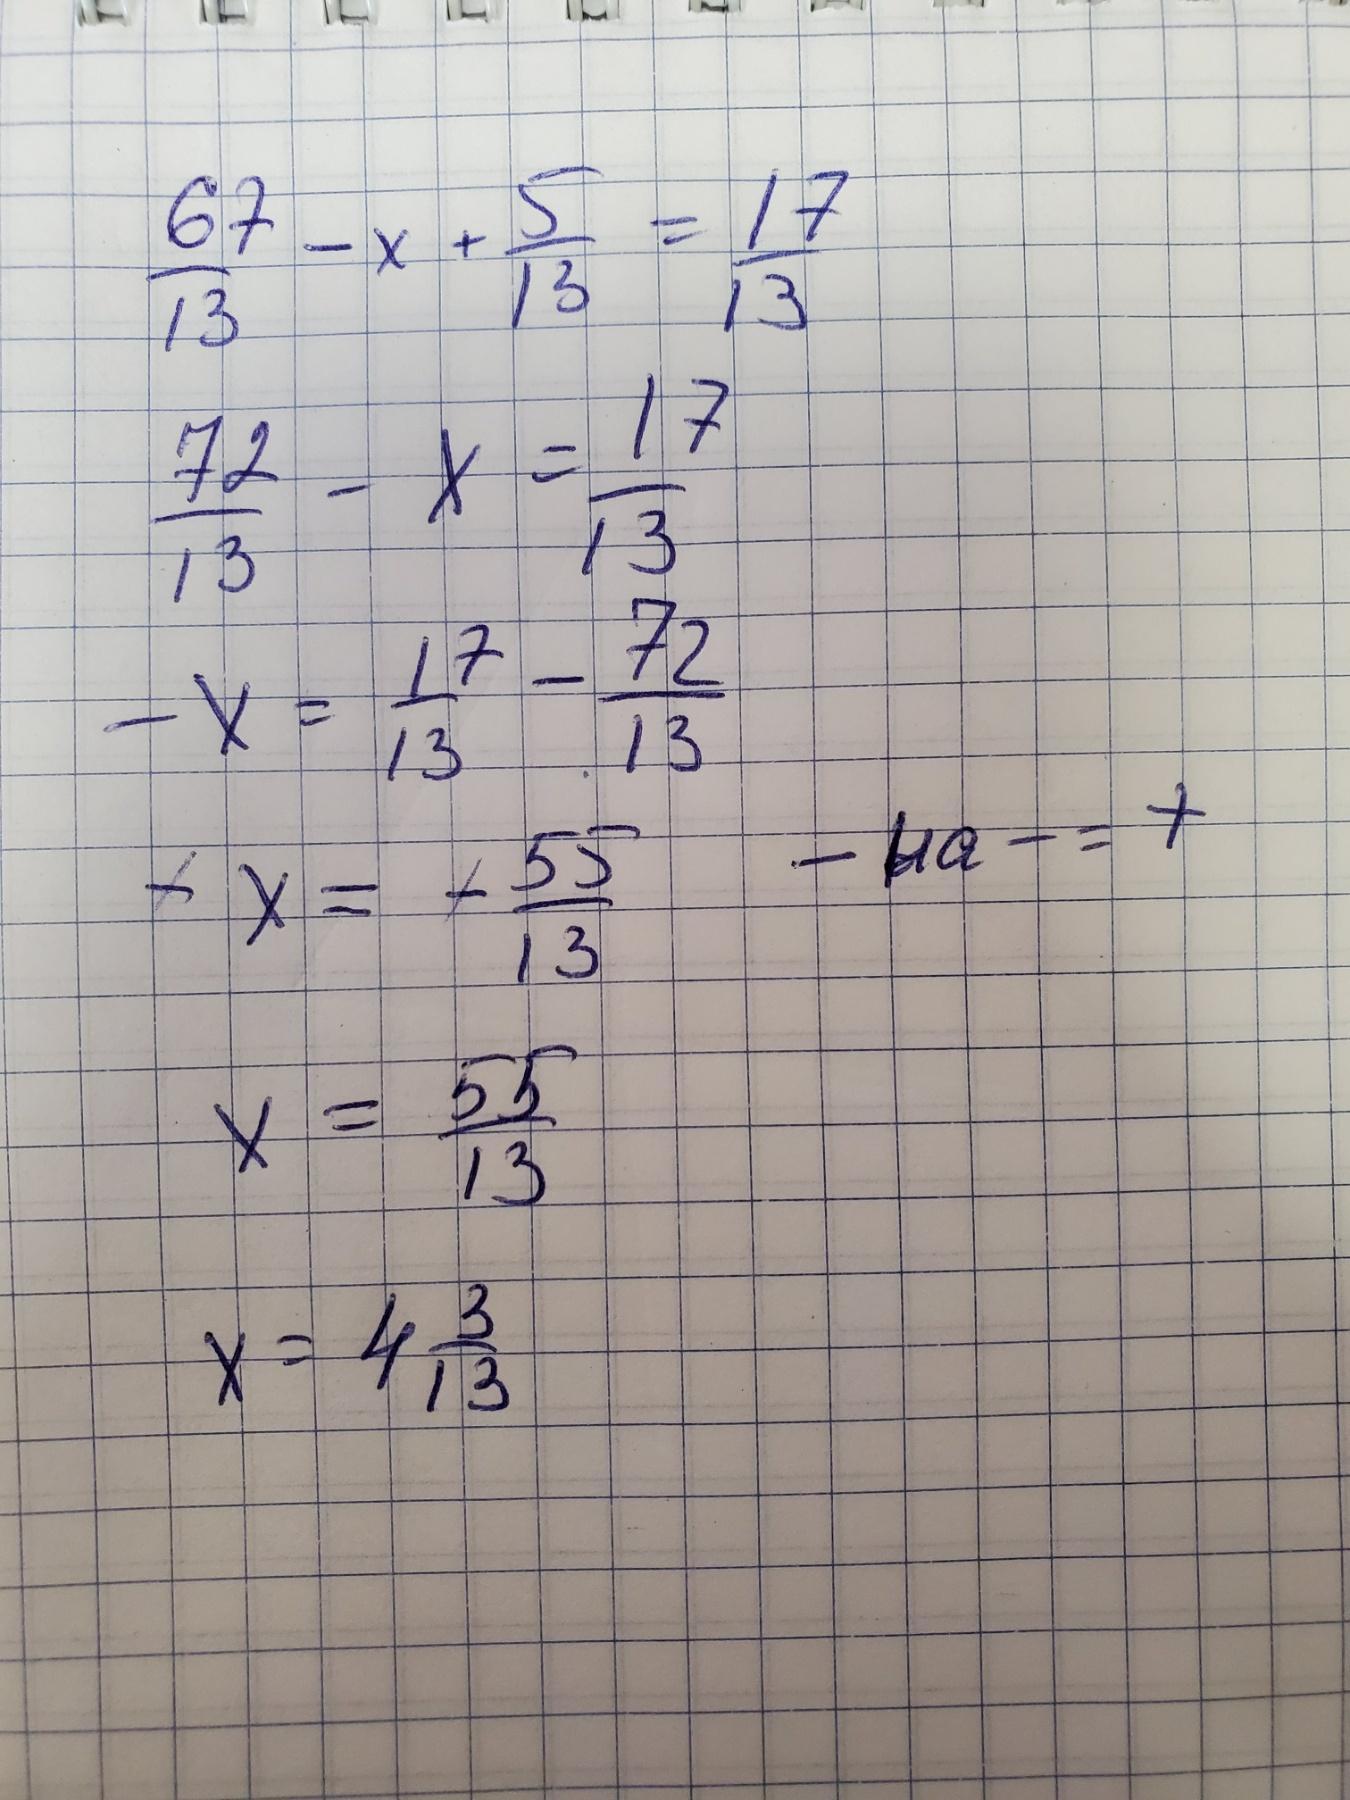 67/13 - x + 5/13 = 17/13
72/13 - x = 17/13
- x = 17/13 - 72/13
- x = - 55/13   - на - = +
x = 55/13
x = 4 3/13